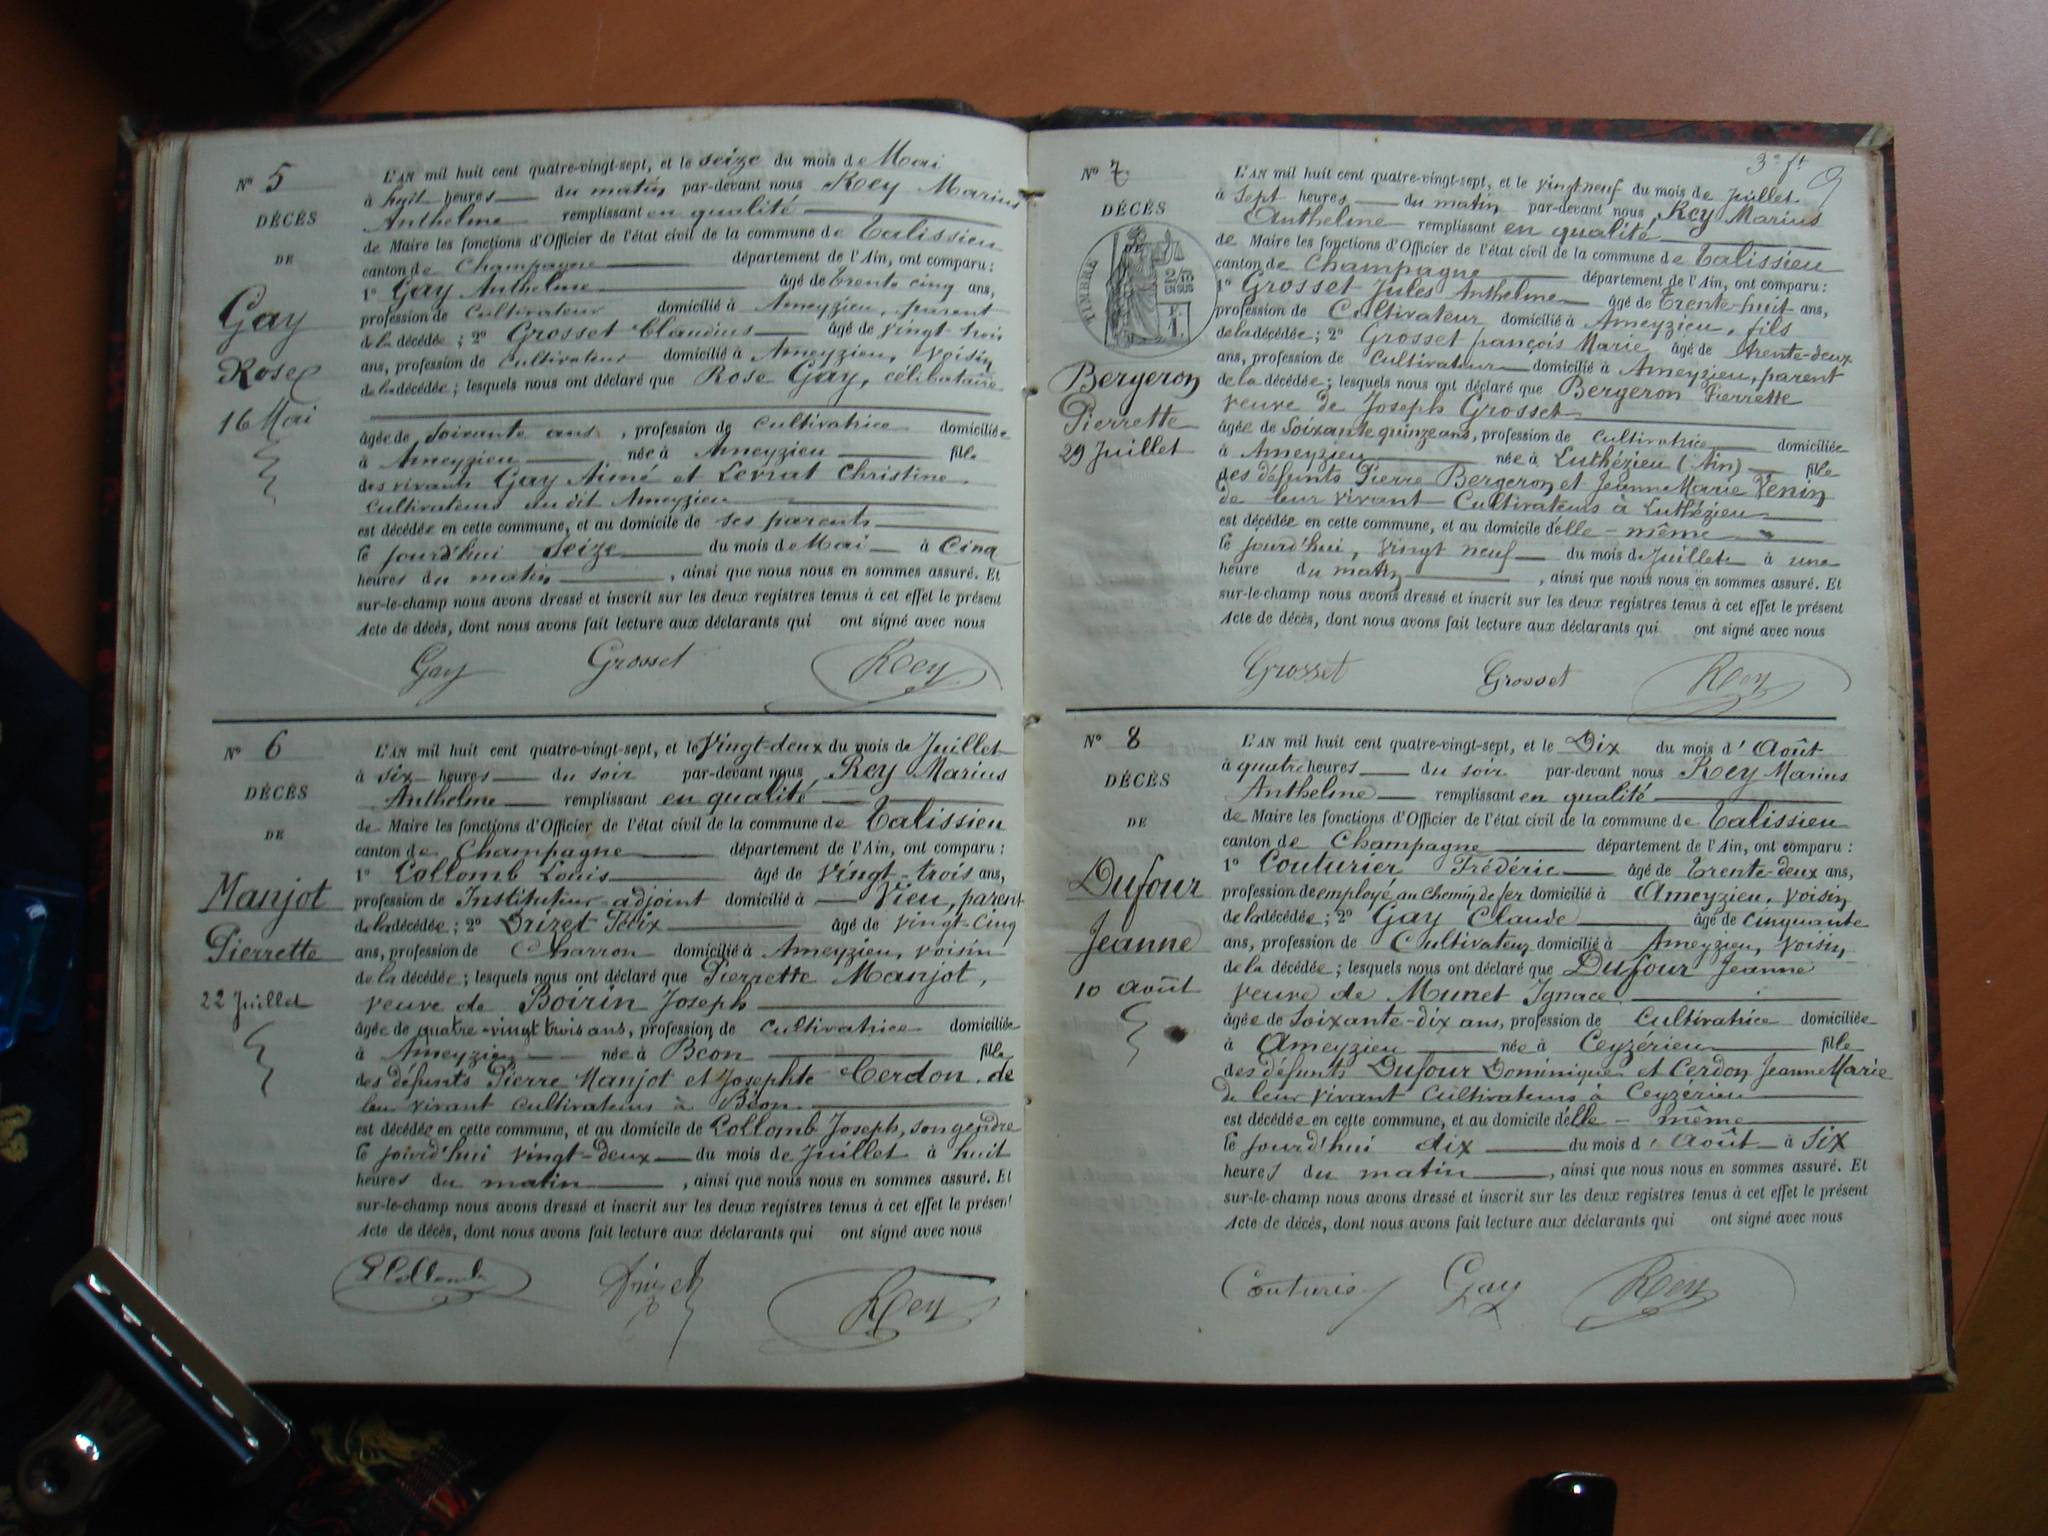 N° 5
DÉCÈS
DE
Gay
Rose
16 Mai
L'AN mil huit cent quatre-vingt-sept, et le seize du mois de Mai
à huit heures du matin par-devant nous Rey Marius
Anthelme remplissant en qualité
de Maire les fonctions d'Officier de l'état civil de la commune de Talissieu
canton de Champagne département de l'Ain, ont comparu :
1° Gay Anthelme âgé de trente cinq ans,
profession de Cultivateur domicilié à Ameyzieu, parent
de la décédée ; 2° Grosset Claudius âgé de vingt huit
ans, profession de cultivateur domicilié à Ameyzieu, voisin
de la décédée ; lesquels nous ont déclaré que Rose Gay, célibataire
âgée de soixante ans, profession de cultivatrice domiciliée
à Ameyzieu née à Ameyzieu fille
des vivants Gay Aimé et Levrat Christine
cultivateurs au dit Ameyzieu
est décédée en cette commune, et au domicile de ses parents
le jourd'hui seize du mois de Mai à Cinq
heures du matin, ainsi que nous nous en sommes assuré. Et
sur-le-champ nous avons dressé et inscrit sur les deux registres tenus à cet effet le présent
Acte de décès, dont nous avons fait lecture aux déclarants qui ont signé avec nous
Gay Grosset Rey
N° 6
DÉCÈS
DE
Manjot
Pierrette
22 Juillet
L'AN mil huit cent quatre-vingt-sept, et le Vingt-deux du mois de Juillet
à six heures du soir par-devant nous Rey Marius
Anthelme remplissant en qualité
de Maire les fonctions d'Officier de l'état civil de la commune de Talissieu
canton de Champagne département de l'Ain, ont comparu :
1° Collomb Louis âgé de Vingt-trois ans,
profession de Instituteur-adjoint domicilié à Vieu, parent
de la décédée ; 2° Drizet Félix âgé de vingt-cinq
ans, profession de Charron domicilié à Ameyzieu, voisin
de la décédée ; lesquels nous ont déclaré que Pierrette Manjot,
veuve de Boirin Joseph
âgée de quatre-vingt trois ans, profession de cultivatrice domiciliée
à Ameyzieu née à Béon fille
des défunts Pierre Manjot et Josephte Cerdon de
leur vivant cultivateurs à Béon
est décédée en cette commune, et au domicile de Collomb Joseph, son gendre
le jourd'hui vingt-deux du mois de Juillet à huit
heures du matin, ainsi que nous nous en sommes assuré. Et
sur-le-champ nous avons dressé et inscrit sur les deux registres tenus à cet effet le présent
Acte de décès, dont nous avons fait lecture aux déclarants qui ont signé avec nous
L Collomb Drizet Rey
3e ft 9
N° 7
DÉCÈS
TIMBRE
Bergeron
Pierrette
29 Juillet
L'AN mil huit cent quatre-vingt-sept, et le vingt neuf du mois de Juillet
à Sept heures du matin par-devant nous Rey Marius
Anthelme remplissant en qualité
de Maire les fonctions d'Officier de l'état civil de la commune de Talissieu
canton de Champagne département de l'Ain, ont comparu :
1° Grosset Jules Anthelme âgé de Trente-huit ans,
profession de Cultivateur domicilié à Ameyzieu, fils
de la décédée ; 2° Grosset françois Marie âgé de trente-deux
ans, profession de Cultivateur domicilié à Ameyzieu, parent
de la décédée ; lesquels nous ont déclaré que Bergeron Pierrette
veuve de Joseph Grosset
âgée de Soixante quinze ans, profession de cultivatrice domiciliée
à Ameyzieu née à Luthézieu (Ain) fille
des défunts Pierre Bergeron et Jeanne Marie Venin
de leur vivant Cultivateurs à Luthézieu
est décédée en cette commune, et au domicile d'elle-même
le jourd'hui, vingt neuf du mois de Juillet à une
heure du matin, ainsi que nous nous en sommes assuré. Et
sur-le-champ nous avons dressé et inscrit sur les deux registres tenus à cet effet le présent
Acte de décès, dont nous avons fait lecture aux déclarants qui ont signé avec nous
Grosset Grosset Rey
N° 8
DÉCÈS
DE
Dufour
Jeanne
10 août
L'AN mil huit cent quatre-vingt-sept, et le Dix du mois d'Août
à quatre heures du soir par-devant nous Rey Marius
Anthelme remplissant en qualité
de Maire les fonctions d'Officier de l'état civil de la commune de Talissieu
canton de Champagne département de l'Ain, ont comparu :
1° Couturier Frédéric âgé de Trente-deux ans,
profession de employé au chemin de fer domicilié à Ameyzieu, voisin
de la décédée ; 2° Gay Claude âgé de cinquante
ans, profession de Cultivateur domicilié à Ameyzieu, voisin
de la décédée ; lesquels nous ont déclaré que Dufour Jeanne
veuve de Munet Ignace
âgée de Soixante-dix ans, profession de Cultivatrice domiciliée
à Ameyzieu née à Ceyzérieu fille
des défunts Dufour Dominique et Cerdon Jeanne Marie
de leur vivant Cultivateurs à Ceyzérieu
est décédée en cette commune, et au domicile d'elle-même
le jourd'hui dix du mois d'Août à six
heures du matin, ainsi que nous nous en sommes assuré. Et
sur-le-champ nous avons dressé et inscrit sur les deux registres tenus à cet effet le présent
Acte de décès, dont nous avons fait lecture aux déclarants qui ont signé avec nous
Couturier Gay Rey